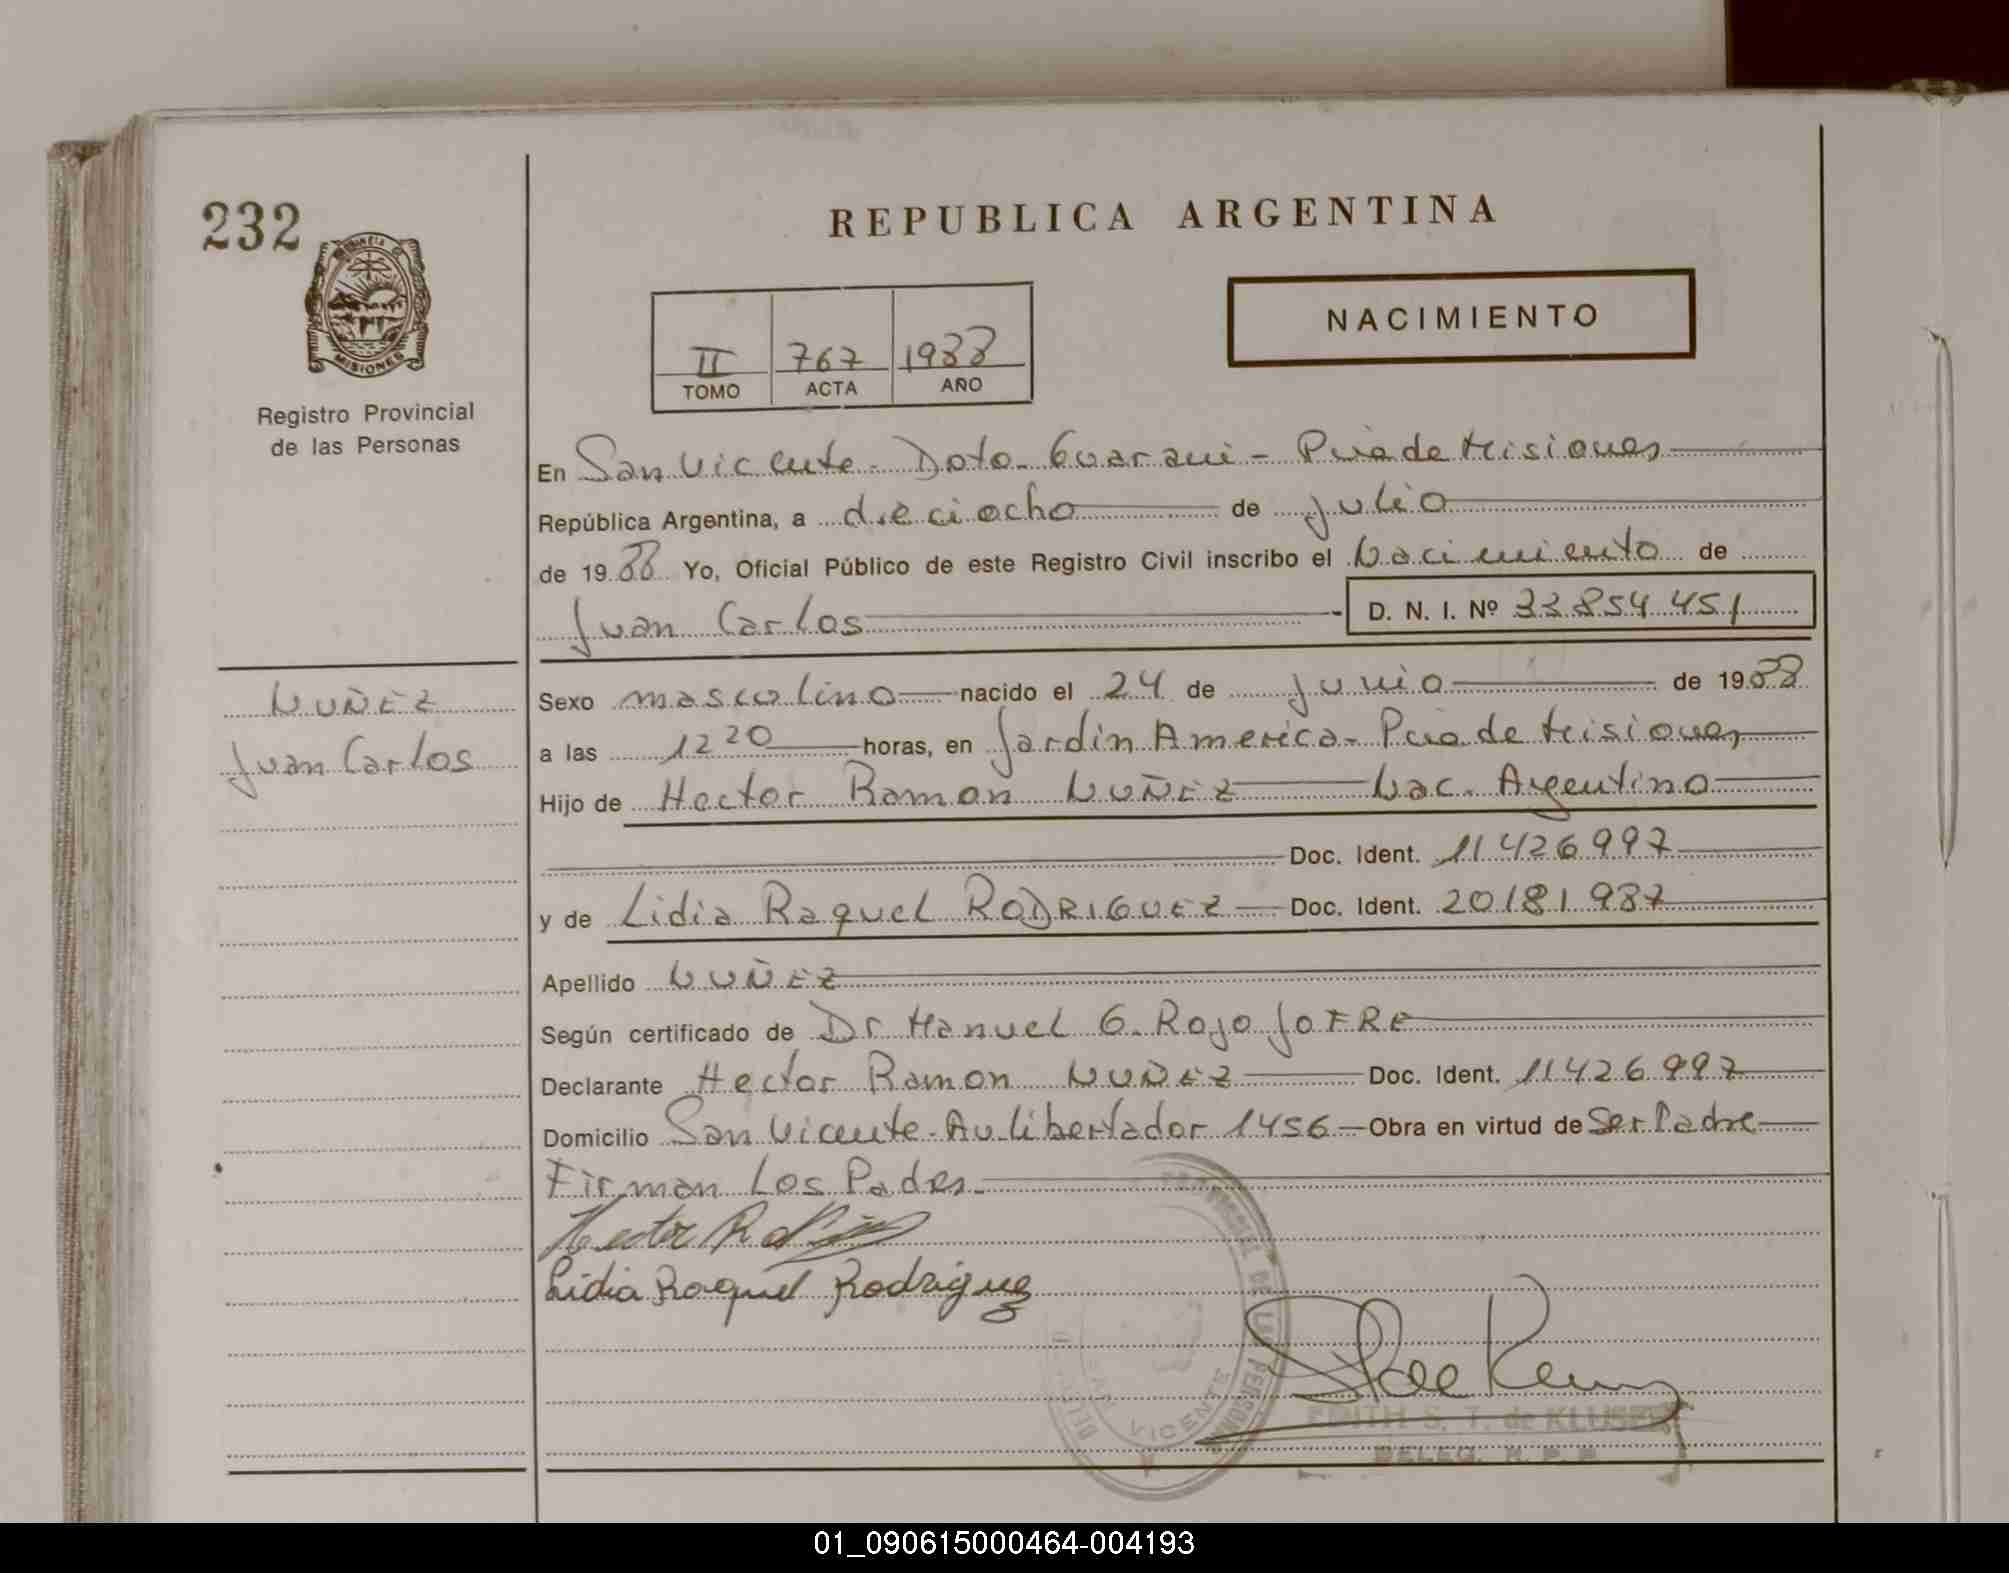 232
PROVINCIA DE
MISIONES
Registro Provincial
de las Personas
REPUBLICA ARGENTINA
NACIMIENTO
II 767 1988
TOMO ACTA AÑO
En San Vicente - Dpto. Guarani - Pcia de Misiones
República Argentina, a dieciocho de julio
de 1988 Yo, Oficial Público de este Registro Civil inscribo el Nacimiento de
Juan Carlos D. N. I. Nº 33.854.451
NUÑEZ
Juan Carlos
Sexo masculino nacido el 24 de junio de 1988
a las 12 20 horas, en Jardin America - Pcia de Misiones
Hijo de Hector Ramon NUÑEZ Nac. Argentino
Doc. Ident. 11.426.997
y de Lidia Raquel RODRIGUEZ Doc. Ident. 20.181.987
Apellido NUÑEZ
Según certificado de Dr Manuel G. Rojo JOFRE
Declarante Hector Ramon NUÑEZ Doc. Ident. 11.426.997
Domicilio San Vicente - Av. Libertador 1456 Obra en virtud de Ser Padre
Firman Los Padres.
Hector R
Lidia Raquel Rodriguez
PROVINCIAL DE LAS PERSONAS
SAN VICENTE
EDITH S. T. de KLUSE
DELEG. R. P. P.
01_090615000464-004193